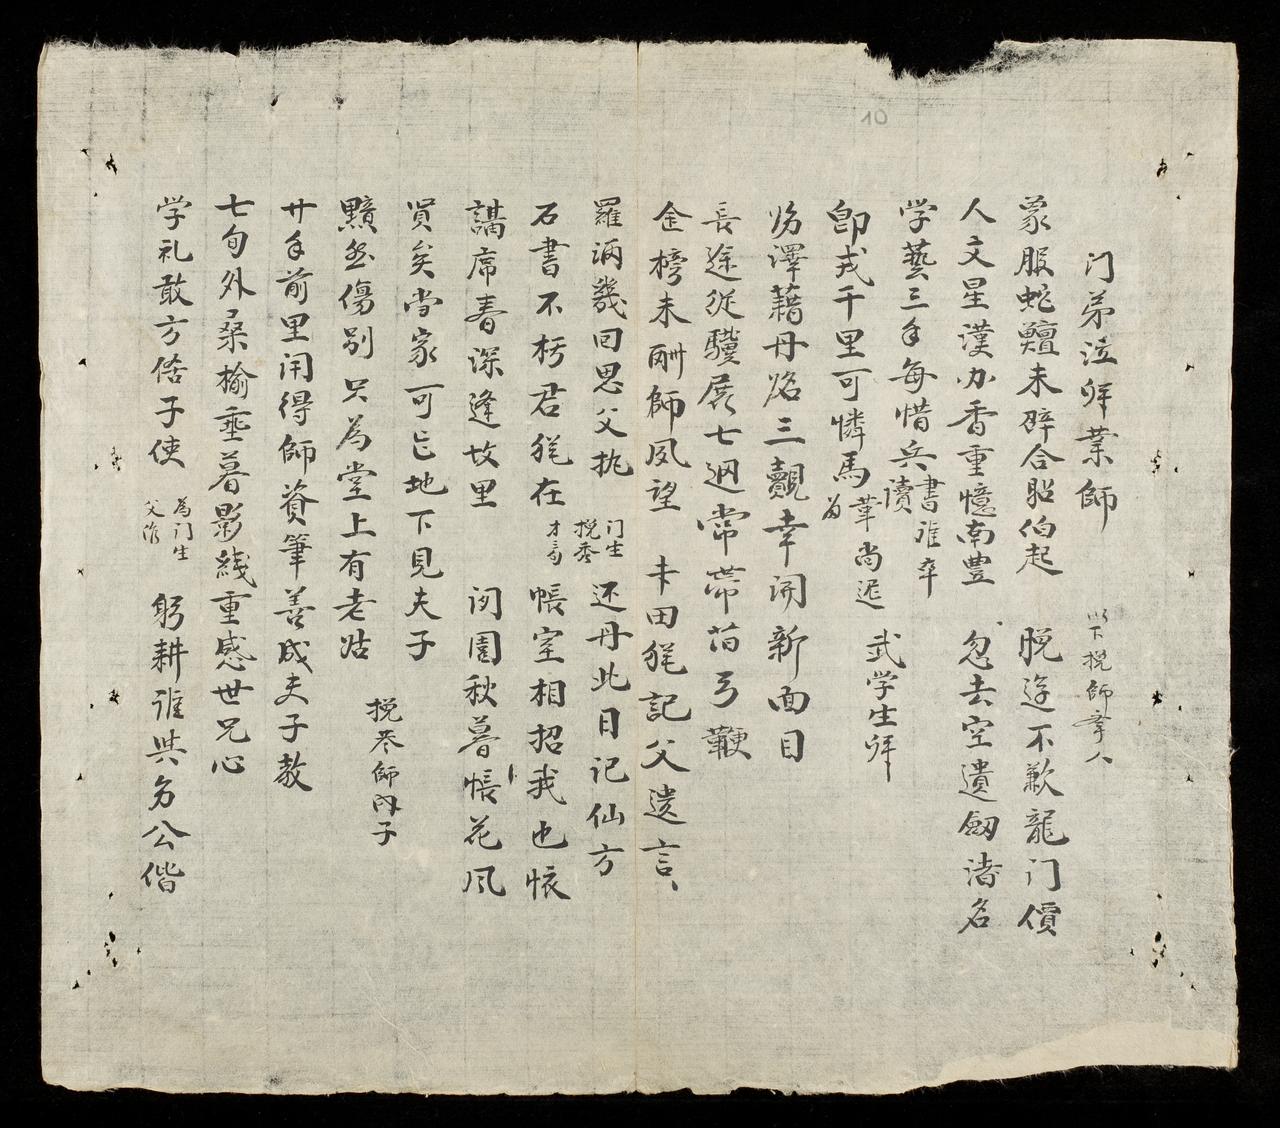 门弟泣拜業師 以下挽師輩人
蒙服蛇鱣未辭合貽伯起 脱迳不歉龍门價
人文星漢办香重憶南豊 忽去空遺劔渚名
学藝三年每惜兵書誰卒讀
卽戎千里可憐馬革尚迟为 武学生拜
沕澤藉丹爐三覿幸開新面目
長途従驥展七迵常帶葫弓鞭
金榜未酬師夙望 丰田旄記父遗言
羅酒幾回思父执 还丹此日记仙方
石書不朽君旄在 门生挽孝才弓 帳室相招我也恢
講席春深逢故里 词園秋暮帳花风
賢矣当家可忘地下見夫子
黯然傷别只為堂上有老姑 挽恭師內子
廿年前里闬得師資筆善成夫子教
七旬外桑榆垂暮影綫重感世兄心
学礼敢方偖子使 為门生父作 躬耕誰與龐公偕
10